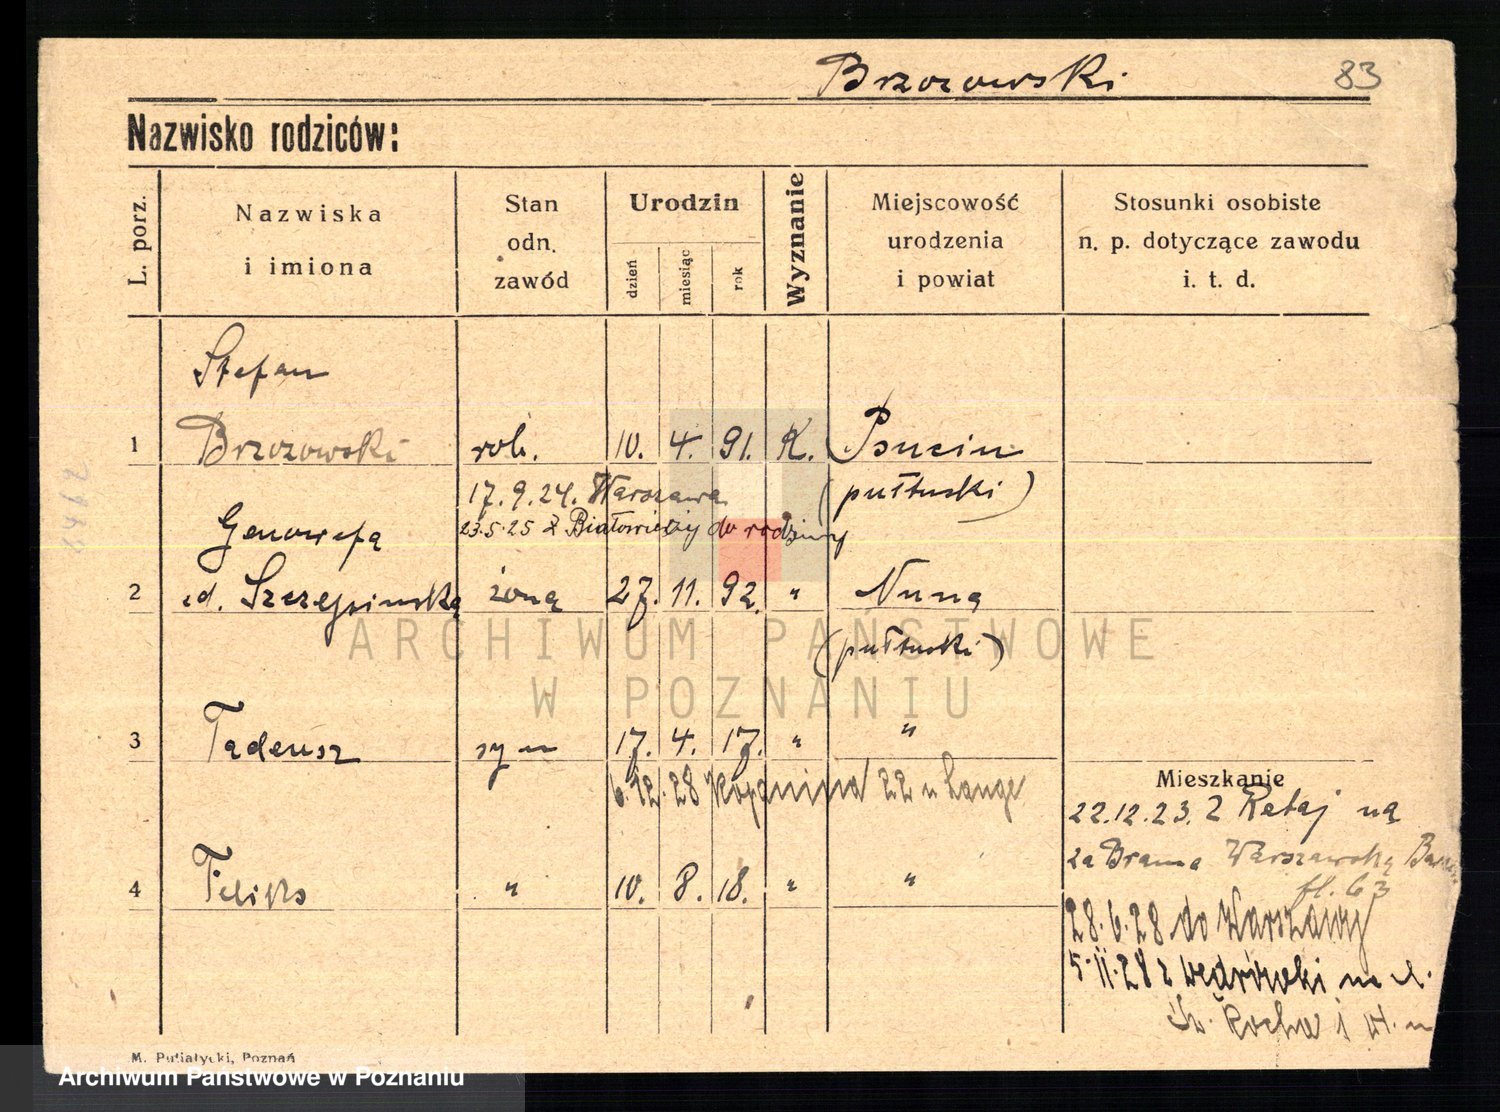 Brzozowski 83
Nazwisko rodziców:
L. porz.
Nazwiska
i imiona
Stan
odn.
zawód
Urodzin
dzień
miesiąc
rok
Wyznanie
Miejscowość
urodzenia
i powiat
Stosunki osobiste
n. p. dotyczące zawodu
i. t. d.
Stefan
1 Brzozowski rob. 10. 4. 91. K. Psucin
17.9.24. Warszawa (pułtuski)
23.5.25 z Białowieży do rodziny
Genowefa
2 Szczepińska żona 27. 11. 92. " Nuna
(pułtuski)
3 Tadeusz syn 17. 4. 17. " "
6.12.28 Kopanina 22 u Lange
Mieszkanie
22.12.23. Z Rataj na
za Bramą Warszawską
4 Feliks " 10. 8. 18. " "
fl. 63
28.6.28 do Warszawy
5.11.28 z wędrówki
Św. Rocha
8462
M. Putiatycki, Poznań
ARCHIWUM PAŃSTWOWE
W POZNANIU
Archiwum Państwowe w Poznaniu